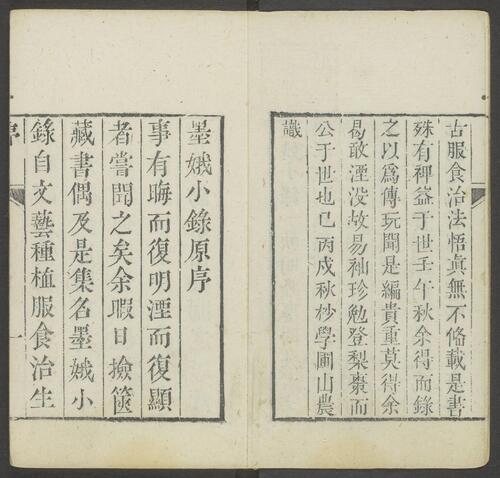 古服食治法悟眞無不俻載是書
殊有禆益于世壬午秋余得而錄
之以爲傳玩聞是編貴重莫得余
曷敢湮没故易袖珍勉登梨棗而
公于世也已丙戍秋杪學圃山農
識
墨娥小錄原序
事有晦而復明湮而復顯
者嘗聞之矣余暇日撿篋
藏書偶及是集名墨娥小
錄自文藝種植服食治生
序
一